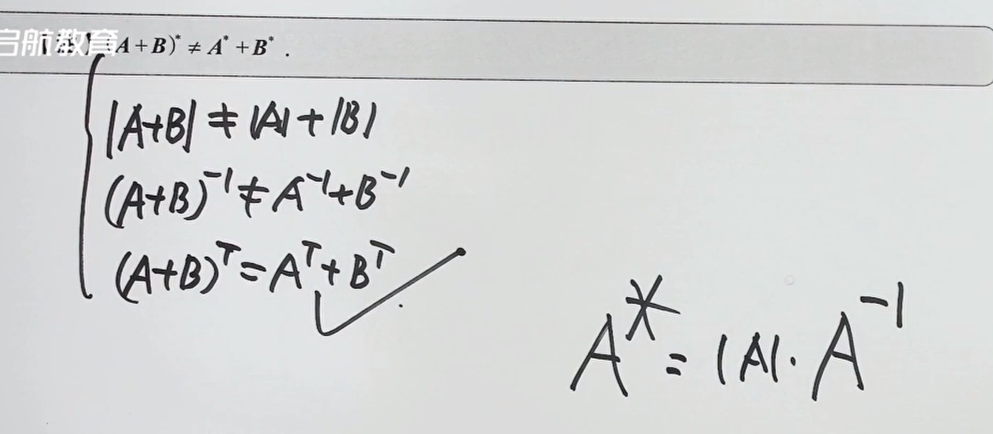 启航教育
(A+B)* ≠ A* + B* .
|A+B| ≠ |A| + |B|
(A+B)⁻¹ ≠ A⁻¹+B⁻¹
(A+B)ᵀ = Aᵀ + Bᵀ
A* = |A| · A⁻¹